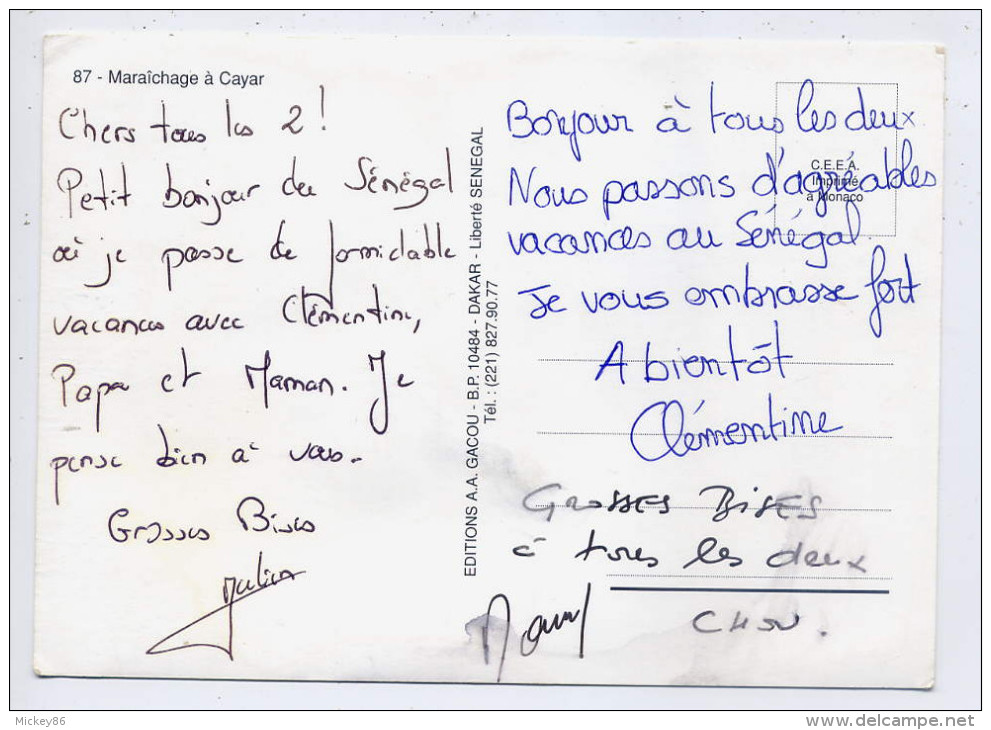 87 - Maraîchage à Cayar
Chers tous les 2 !
Petit bonjour du Sénégal
où je passe de formidable
vacances avec Clémentine,
Papa et Maman. Je
pense bien à vous.
Grosses Bises
Julien
EDITIONS A.A. GACOU - B.P. 10484 - DAKAR - Liberté SENEGAL
Tél. : (221) 827.90.77
C.E.E.A.
Imprimé
à Monaco
Bonjour à tous les deux.
Nous passons d'agréables
vacances au Sénégal.
Je vous embrasse fort
A bientôt
Clémentine
GROSSES BISES
à tous les deux
Mickey86
www.delcampe.net